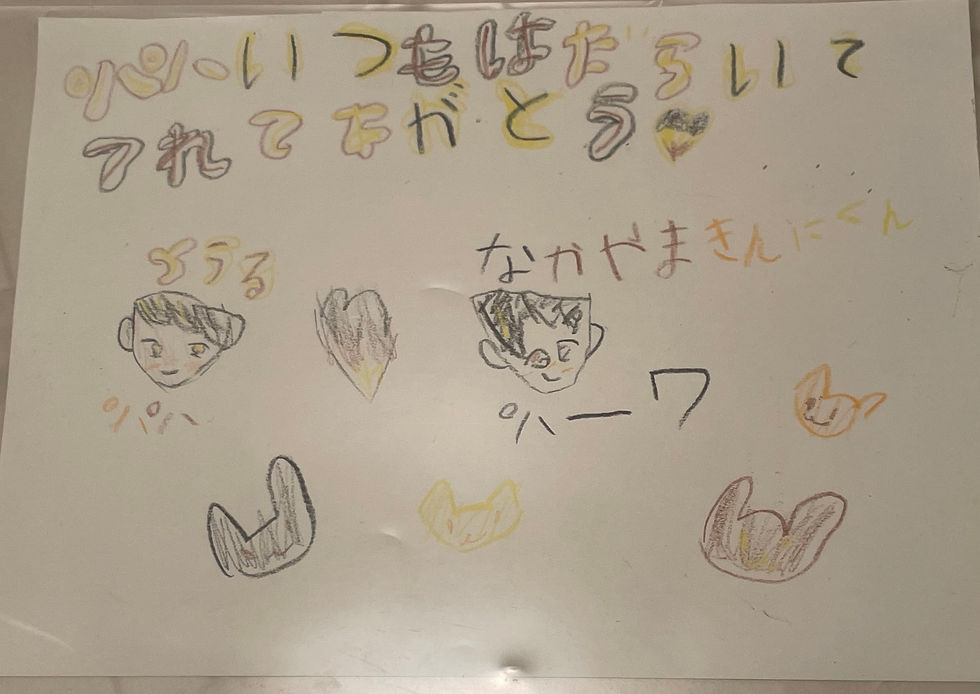 パパいつもはだらいて
くれてあがとう
とうる
なかやまきんにくん
パパ
パーワ